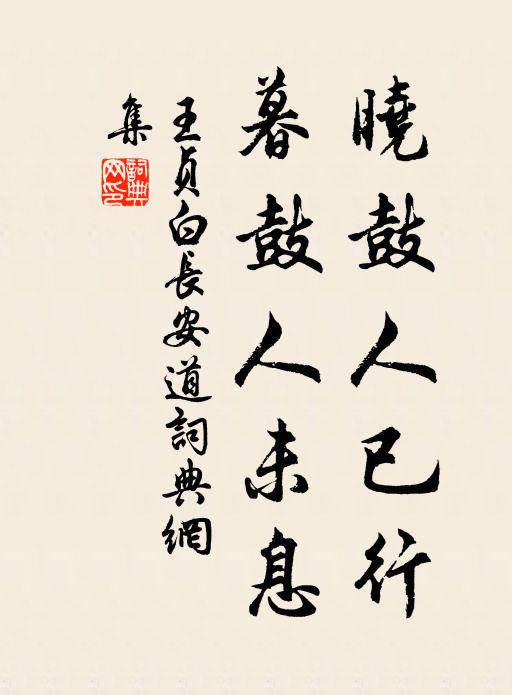 曉鼓人已行
暮鼓人未息
王貞白長安道詞典網
集
詞典
网印